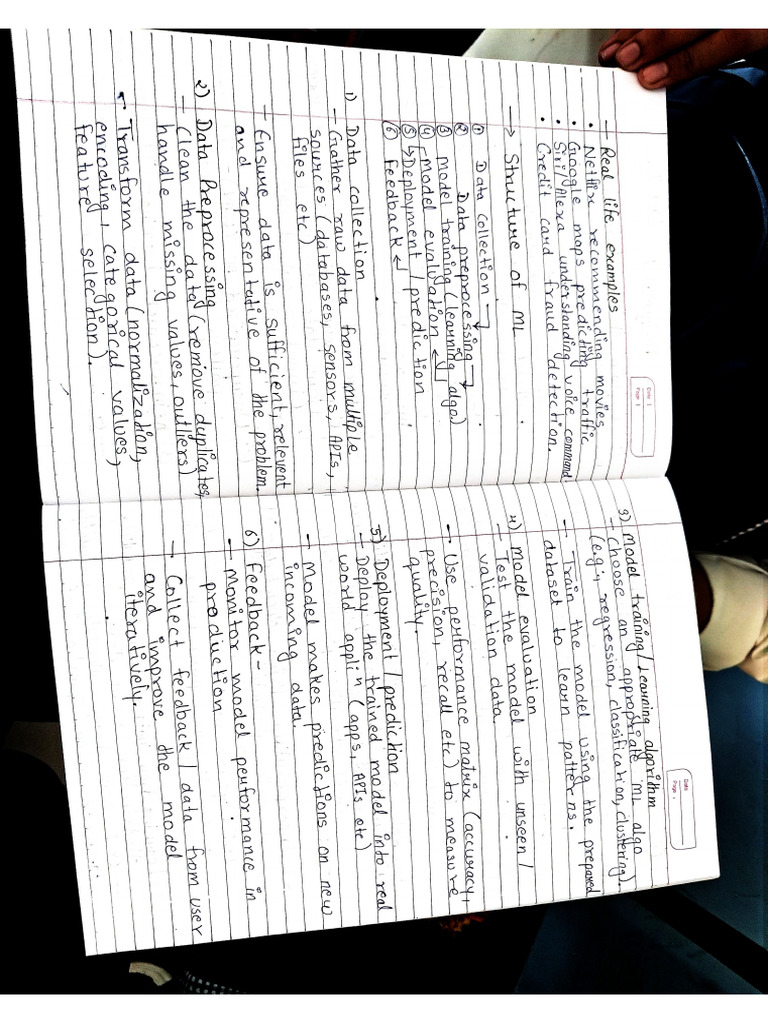 Date
Page
— Real life examples
• Netflix recommending movies
• Google maps predicting traffic
• Siri/Alexa understanding voice command
• Credit card fraud detection.
→ Structure of ML
① Data collection
② Data preprocessing
③ model training (learning algo.)
④ model evaluation
⑤ Deployment / prediction
⑥ Feedback
1) Data collection
— Gather raw data from multiple
sources (databases, sensors, APIs,
files etc)
— Ensure data is sufficient, relevent
and representative of the problem.
2) Data Preprocessing
— Clean the data (remove duplicates,
handle missing values, outliers)
— Transform data (normalization,
encoding, categorical values,
feature selection).
Date
Page
3) Model training/Learning algorithm
— Choose an appropriate ML algo
(e.g., regression, classification, clustering).
— Train the model using the prepared
dataset to learn patterns.
4) model evaluation
— Test the model with unseen /
validation data.
— Use performance matrix (accuracy,
precision, recall etc) to measure
quality.
5) Deployment / prediction
— Deploy the trained model into real
world appliⁿ (apps, APIs etc)
— Model makes predictions on new
incoming data
6) Feedback -
— Monitor model performance in
production
— Collect feedback / data from user
and improve the model
iteratively.